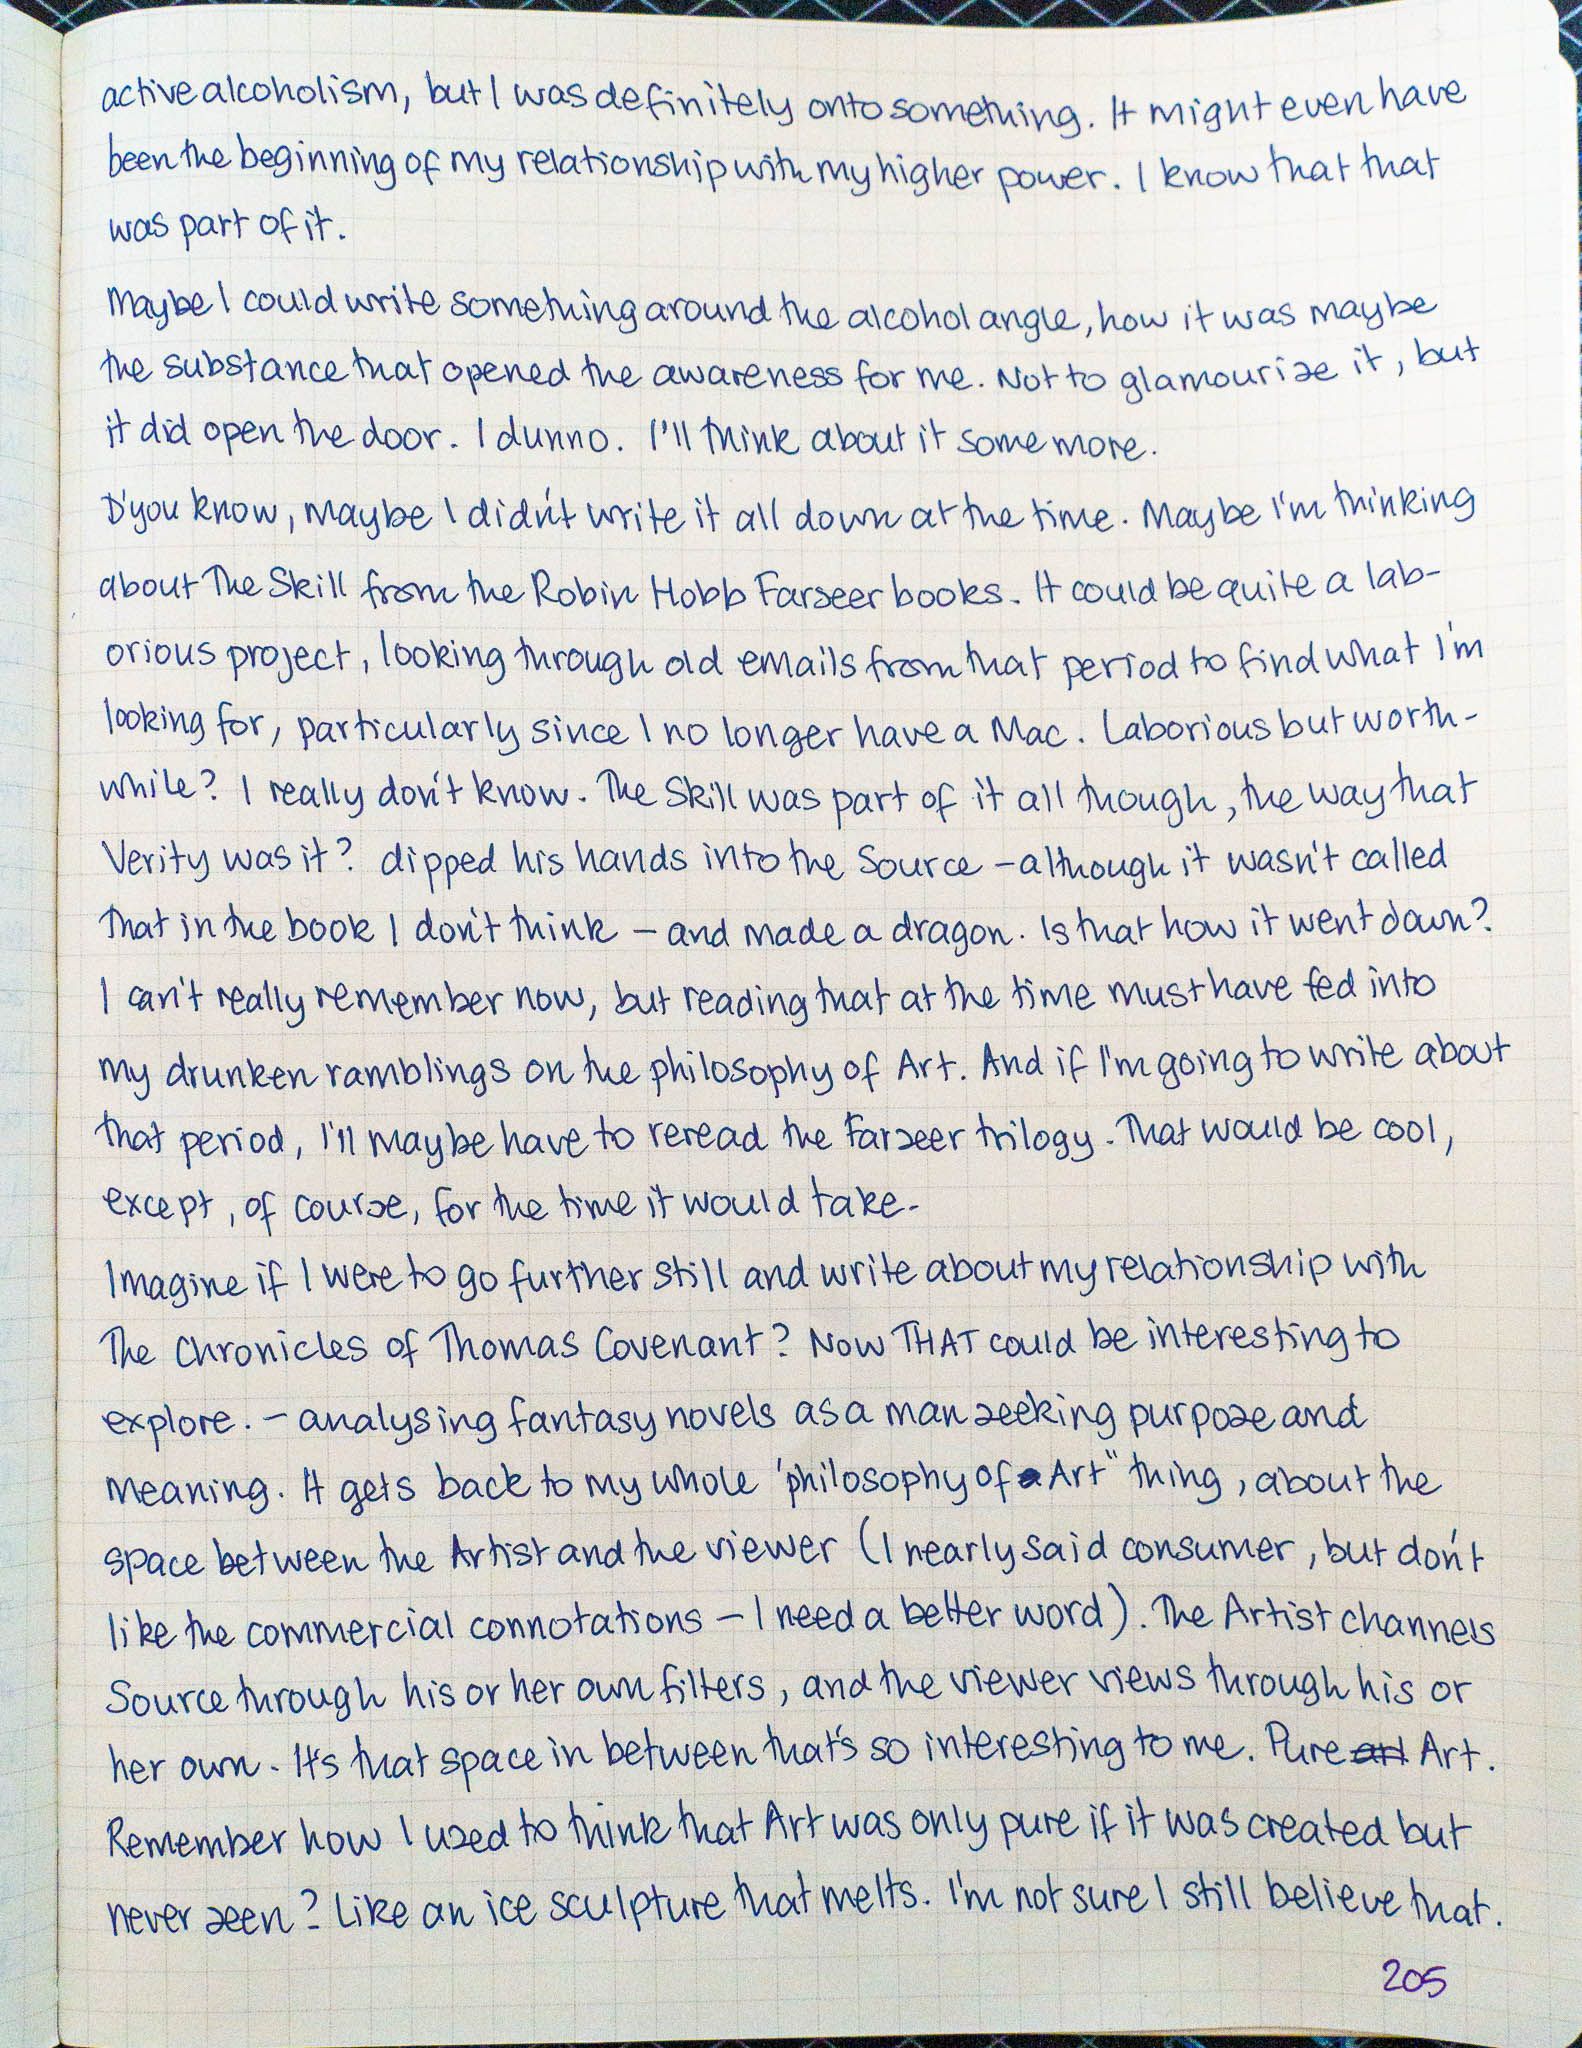 active alcoholism, but I was definitely onto something. It might even have
been the beginning of my relationship with my higher power. I know that that
was part of it.
Maybe I could write something around the alcohol angle, how it was maybe
the substance that opened the awareness for me. Not to glamourize it, but
it did open the door. I dunno. I'll think about it some more.
D'you know, maybe I didn't write it all down at the time. Maybe I'm thinking
about The Skill from the Robin Hobb Farseer books. It could be quite a lab-
orious project, looking through old emails from that period to find what I'm
looking for, particularly since I no longer have a Mac. Laborious but worth-
while? I really don't know. The Skill was part of it all though, the way that
Verity was it? dipped his hands into the Source - although it wasn't called
that in the book I don't think - and made a dragon. Is that how it went down?
I can't really remember now, but reading that at the time must have fed into
my drunken ramblings on the philosophy of Art. And if I'm going to write about
that period, I'll maybe have to reread the Farseer trilogy. That would be cool,
except, of course, for the time it would take.
Imagine if I were to go further still and write about my relationship with
The Chronicles of Thomas Covenant? Now THAT could be interesting to
explore. - analysing fantasy novels as a man seeking purpose and
meaning. It gets back to my whole 'philosophy of Art" thing, about the
space between the Artist and the viewer (I nearly said consumer, but don't
like the commercial connotations - I need a better word). The Artist channels
Source through his or her own filters, and the viewer views through his or
her own. It's that space in between that's so interesting to me. Pure art Art.
Remember how I used to think that Art was only pure if it was created but
never seen? Like an ice sculpture that melts. I'm not sure I still believe that.
205